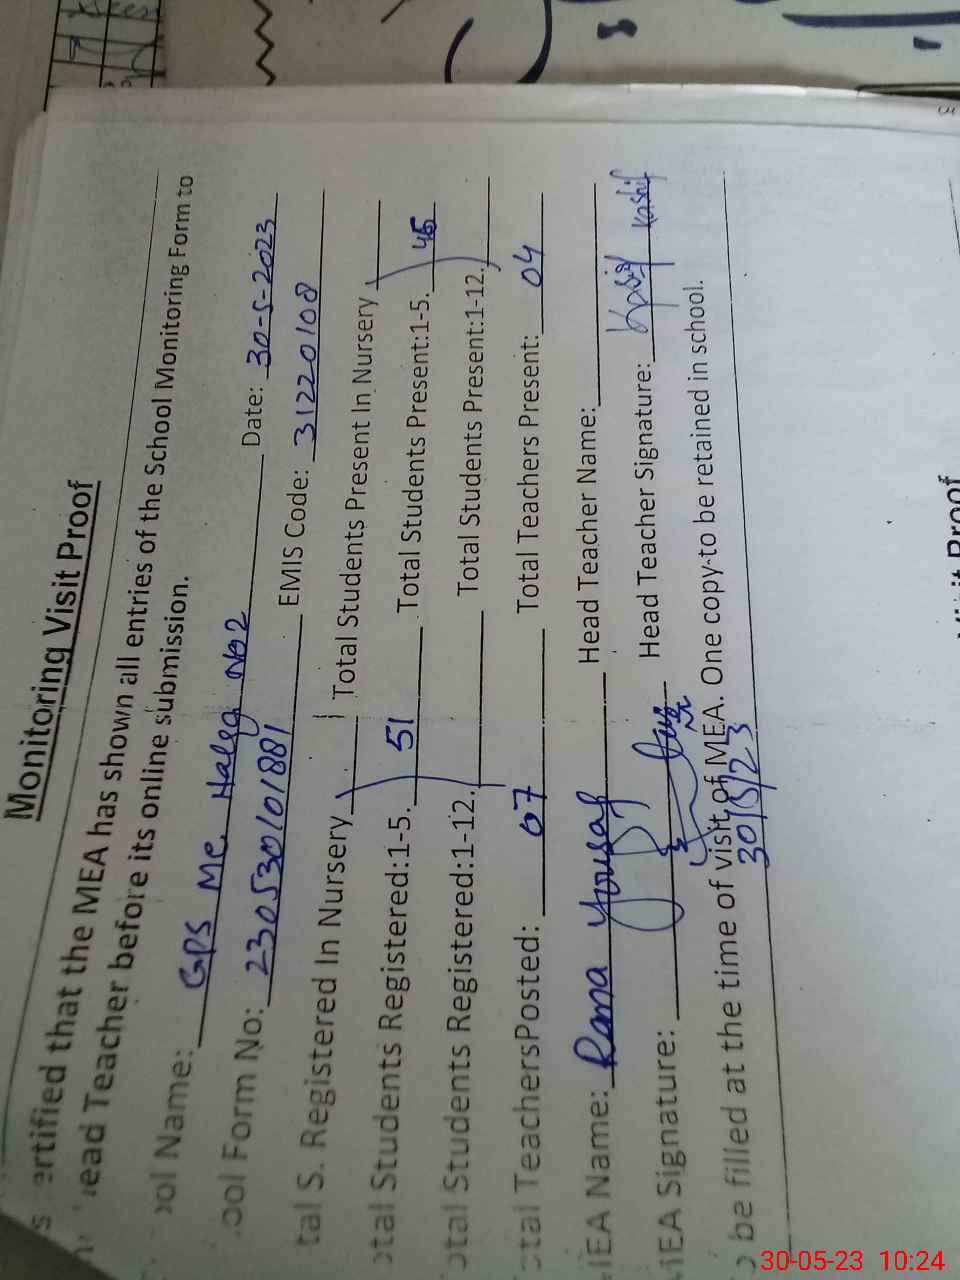 Monitoring Visit Proof
ertified that the MEA has shown all entries of the School Monitoring Form to
ead Teacher before its online submission.
ol Name: GPS Mc. No2 Date: 30-5-2023
ool Form No: 230530101881 EMIS Code: 31220108
tal S. Registered In Nursery Total Students Present In Nursery
otal Students Registered:1-5. 51 Total Students Present:1-5.
otal Students Registered:1-12. Total Students Present:1-12.
otal TeachersPosted: 07 Total Teachers Present: 04
MEA Name: Rana Yousaf Head Teacher Name:
MEA Signature: Head Teacher Signature: Kashif Kashif
o be filled at the time of visit of MEA. One copy to be retained in school.
30/5/23
30-05-23 10:24